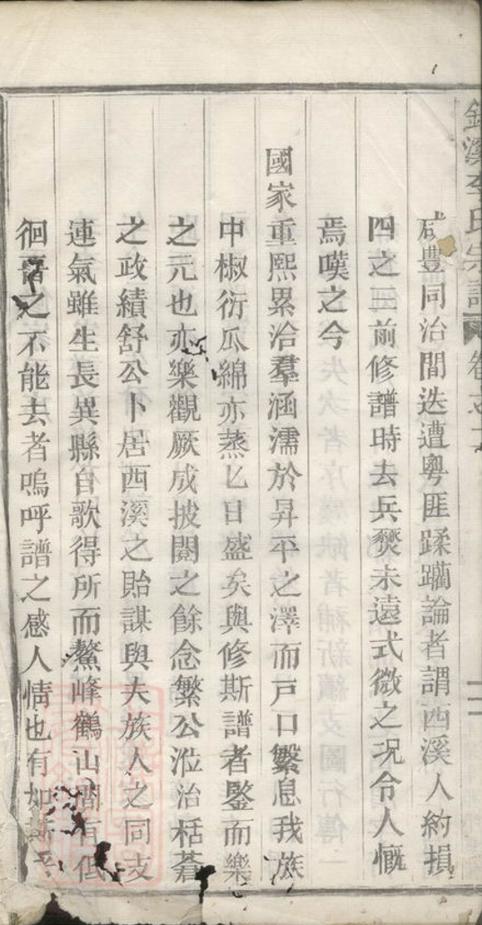 溪李氏宗譜 卷之
咸豐同治間迭遭粵匪蹂躪論者謂西溪人約損
四之三前修譜時去兵燹未遠式微之况令人慨
焉嘆之今
國家重熙累洽羣涵濡於昇平之澤而戸口繁息我族
中椒衍瓜綿亦蒸匕日盛矣與修斯譜者鑒而樂
之元也亦樂觀厥成披閱之餘念繁公涖治栝蒼
之政績舒公卜居西溪之貽謀與夫族人之同支
連氣雖生長異縣自歌得所而鰲峰鶴山間有低
徊之不能去者嗚呼譜之感人情也有如